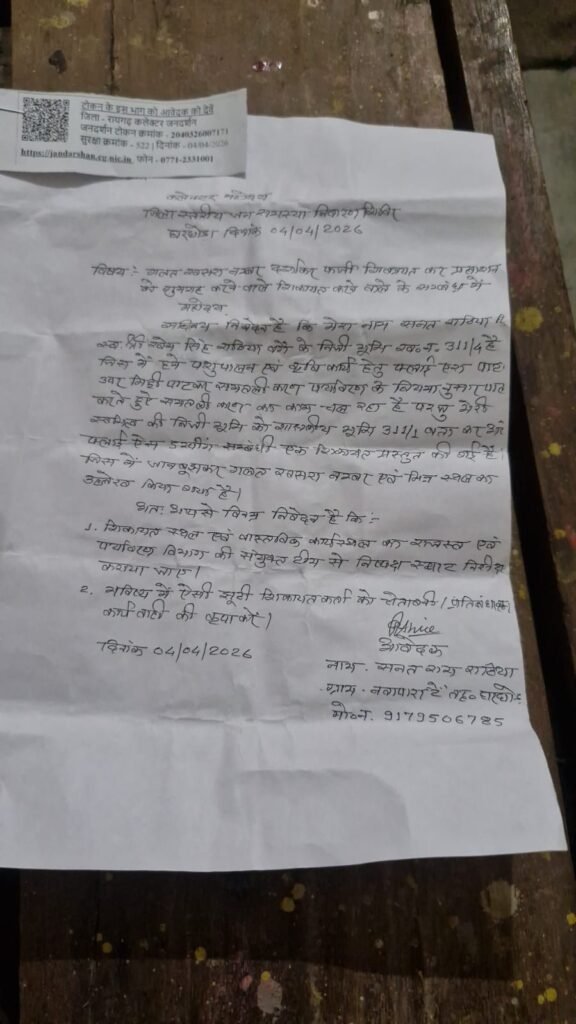 टोकन के इस भाग को आवेदक को देवें
जिला - रायगढ़ कलेक्टर जनदर्शन
जनदर्शन टोकन क्रमांक - 2040326007171
सुरक्षा क्रमांक - 522 | दिनांक - 04/04/2026
https://jandarshan.cg.nic.in फोन - 0771-2331001
कलेक्टर महोदय
जिला स्तरीय जन समस्या निवारण शिविर
दिनांक 04/04/2026
विषय :- गलत खसरा नम्बर फर्जी शिकायत कर प्रशासन
को गुमराह करने वाले शिकायत करने वाले के सम्बंध में
महोदय
सविनय निवेदन है कि मेरा नाम सनत राठिया
स्व. श्री सिंह राठिया के निजी भूमि ख.न. 311/4 है
जिस में हमे पशुपालन एवं कृषि कार्य हेतु फ्लाई एश
मिट्टी पाटकर समतली करण पर्यावरण के नियमा
करते हुए समतली करण का काम चल रहा है परन्तु मेरी
की निजी भूमि को शासकीय भूमि 311/1 बता कर
फ्लाई ऐश डम्पींग सम्बंधी एक शिकायत प्रस्तुत की गई है।
जिस में जानबूझकर गलत खसरा नम्बर एवं भिन्न स्थल का
उल्लेख किया गया है।
अतः आपसे विनम्र निवेदन है कि :-
1. शिकायत स्थल एवं वास्तविक कार्यस्थल का राजस्व एवं
पर्यावरण विभाग की संयुक्त टीम से निष्पक्ष स्थल
कराया जाए।
2. भविष्य में ऐसी झूठी शिकायतकर्ता को चेतावनी /
कार्यवाही की कृपा करें।
आवेदक
दिनांक 04/04/2026
नाम - सनत राम राठिया
ग्राम - नवापारा टें तह०
मो०न. 9179506785